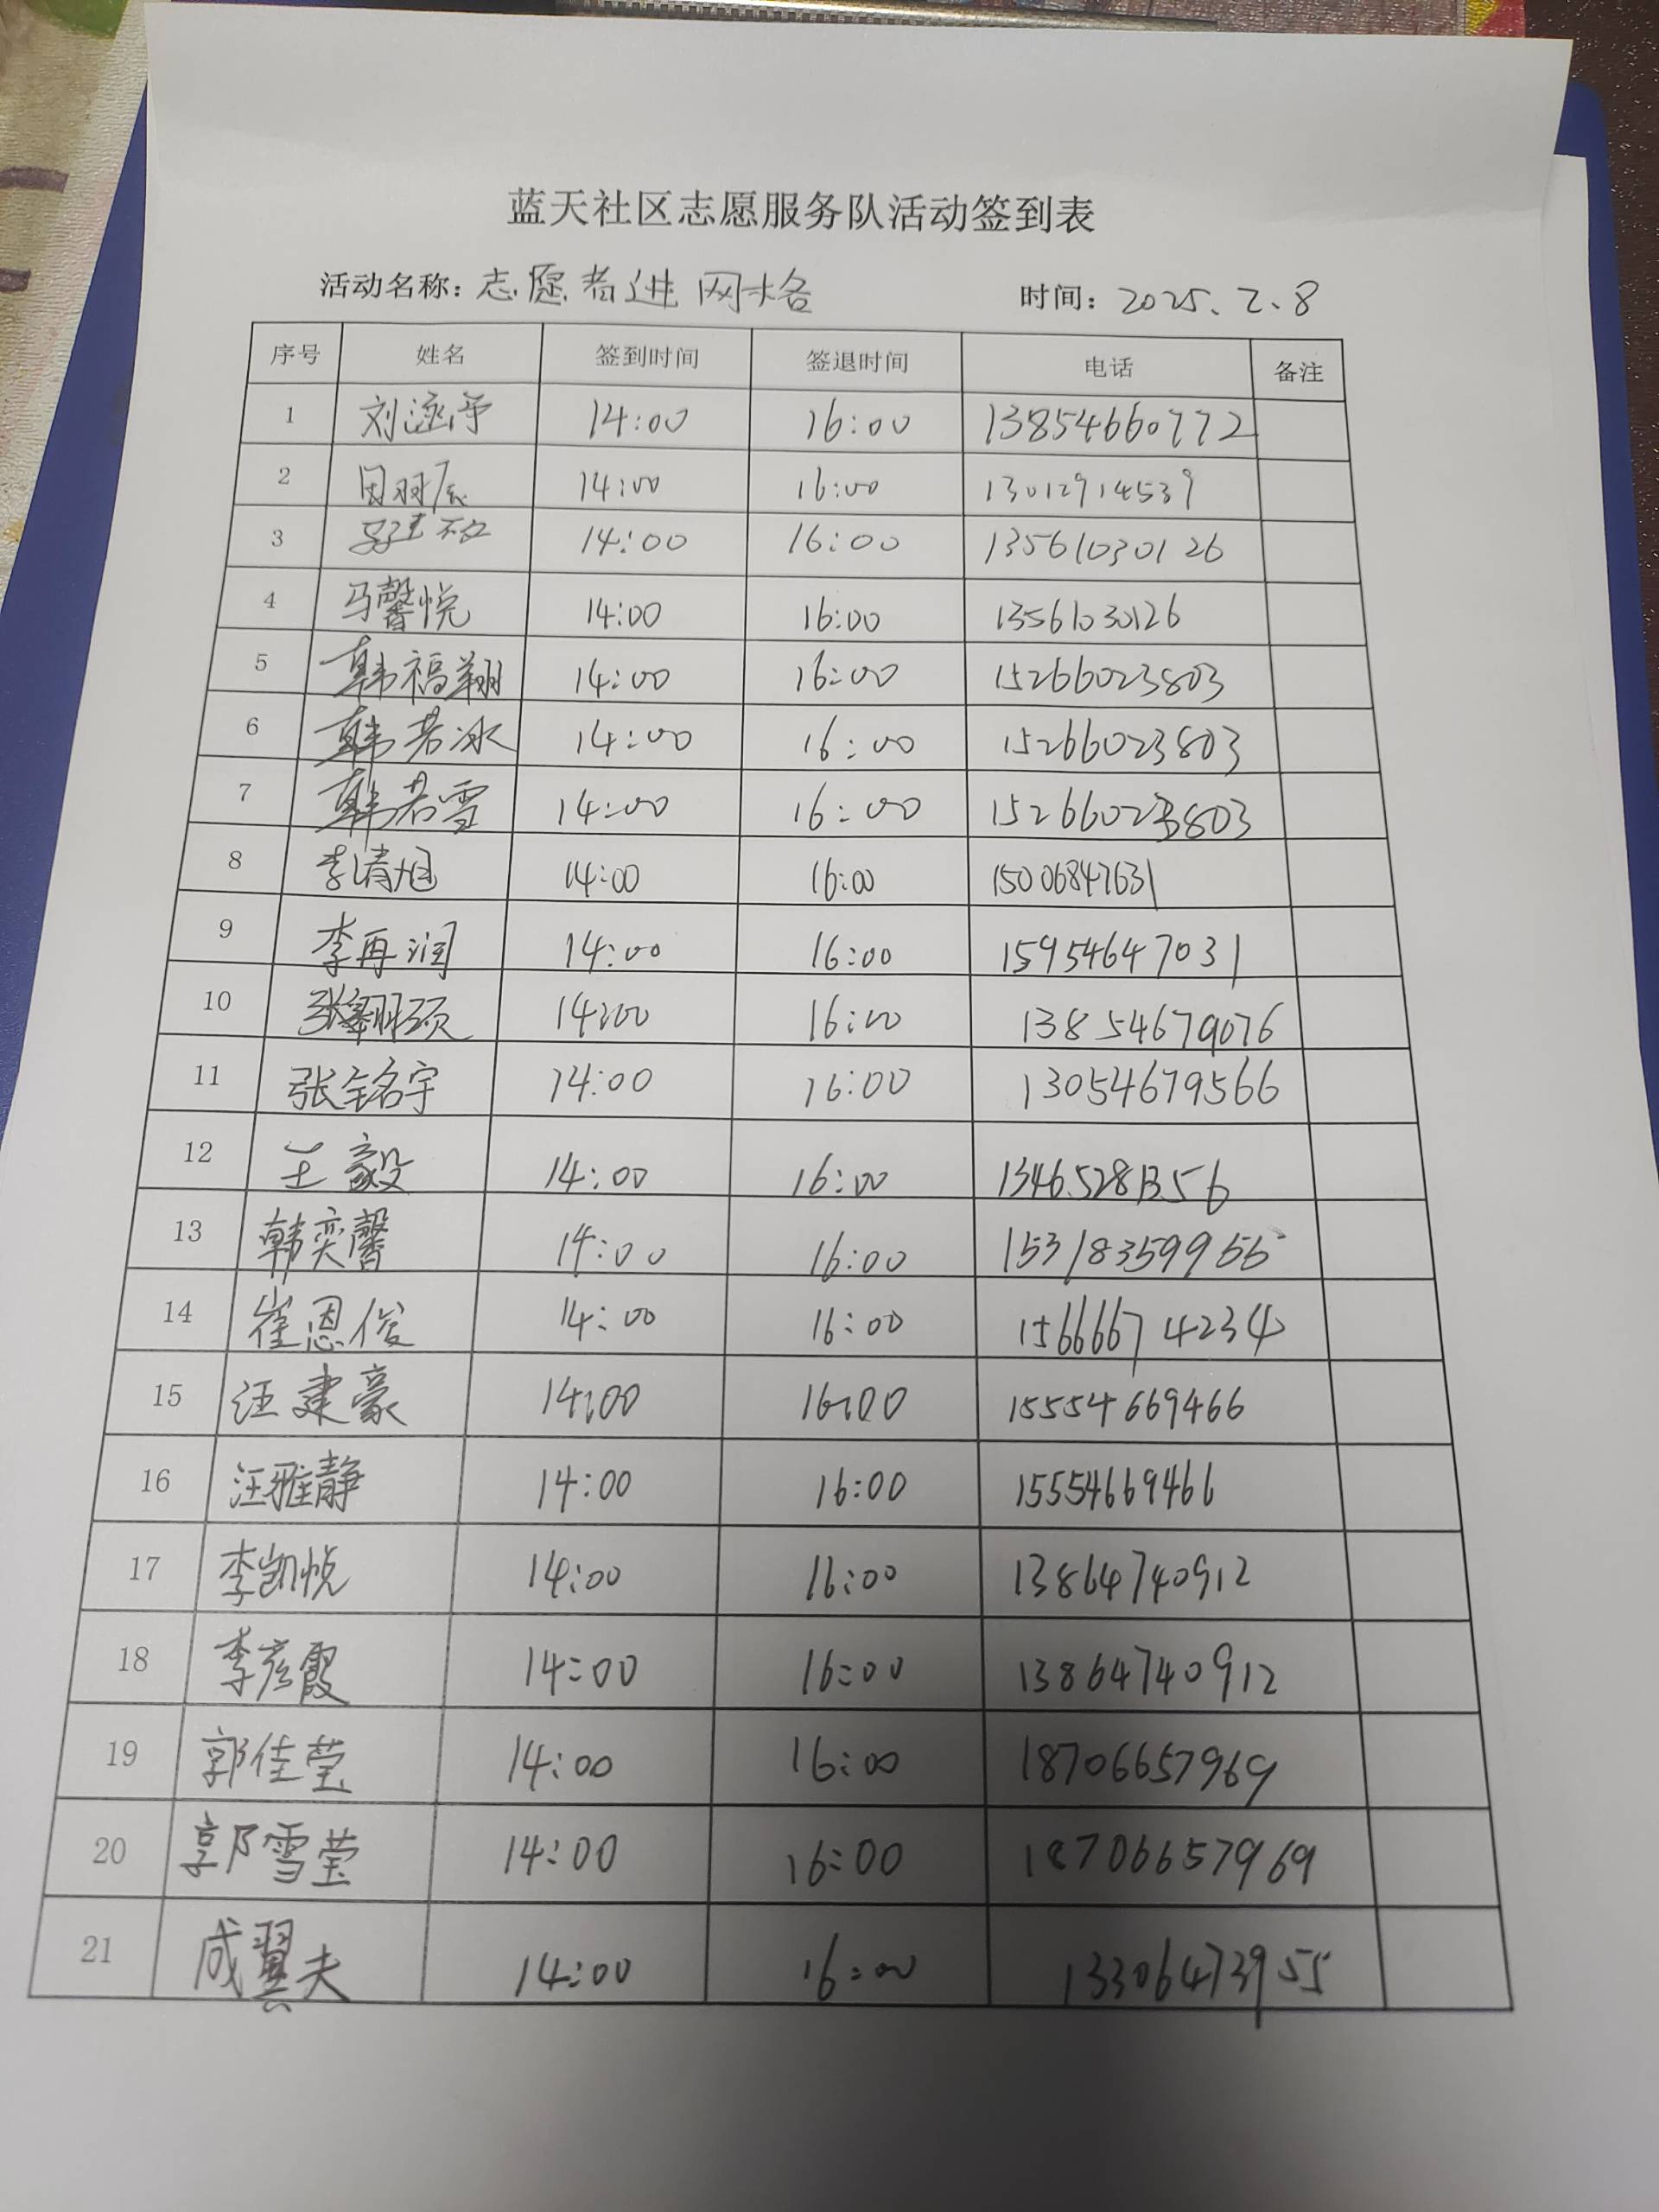 蓝天社区志愿服务队活动签到表
活动名称：志愿者进网格 时间：2025.2.8
序号 姓名 签到时间 签退时间 电话 备注
1 刘涵予 14:00 16:00 13854660772
2 周羽辰 14:00 16:00 13012914539
3 14:00 16:00 13561030126
4 马馨悦 14:00 16:00 13561030126
5 韩福翔 14:00 16:00 15266023803
6 韩若冰 14:00 16:00 15266023803
7 韩若雪 14:00 16:00 15266023803
8 李清旭 14:00 16:00 15006847631
9 李再润 14:00 16:00 15954647031
10 张翱硕 14:00 16:00 13854679076
11 张铭宇 14:00 16:00 13054679566
12 王毅 14:00 16:00 13465281356
13 韩奕馨 14:00 16:00 15318359955
14 崔恩俊 14:00 16:00 15666674234
15 汪建豪 14:00 16:00 15554669466
16 汪雅静 14:00 16:00 15554669466
17 李凯悦 14:00 16:00 13864740912
18 李彦霞 14:00 16:00 13864740912
19 郭佳莹 14:00 16:00 18706657969
20 郭雪莹 14:00 16:00 18706657969
21 成翼夫 14:00 16:00 13306473955